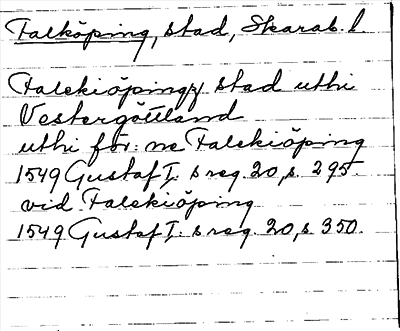 Falköping, stad, Skarab. l.
Falekiöpingz stad uthi
Vestergöttland
uthi för:ne Falekiöping
1549 Gustaf I:s reg. 20, s. 295.
vid Falekiöping
1549 Gustaf I:s reg. 20, s. 350.